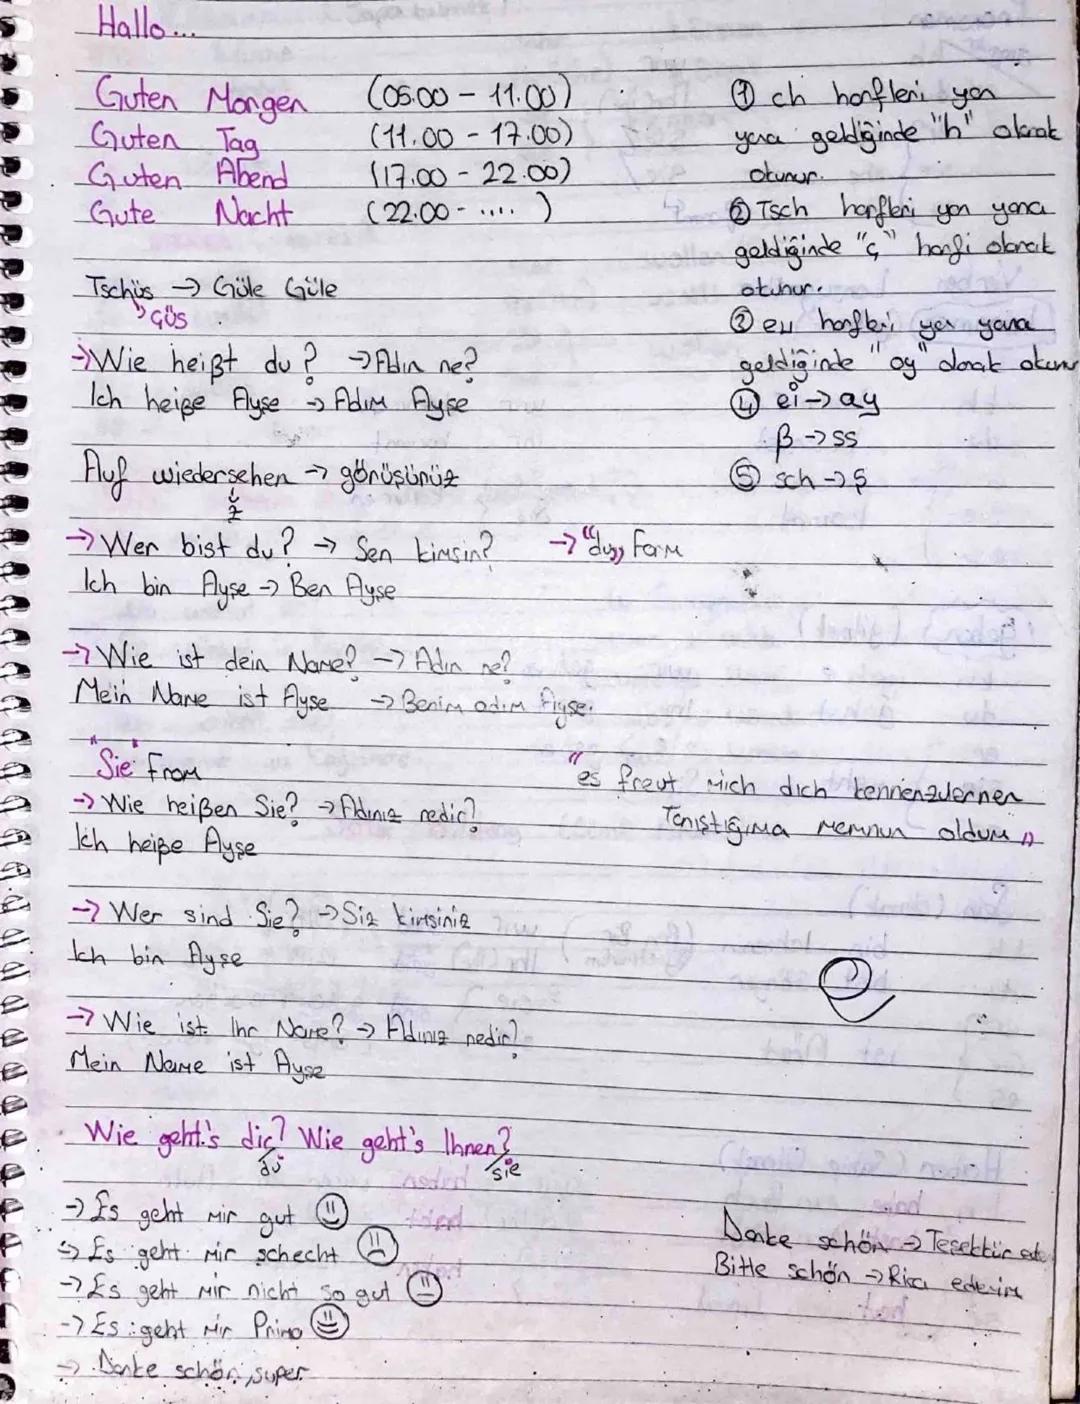 Hallo...
Guten Morgen (05.00 - 11.00)
Guten Tag (11.00 - 17.00)
Guten Abend (17.00 - 22.00)
Gute Nacht (22.00 - .... )
① ch harfleri yan
yana geldiğinde "h" olarak
okunur.
② Tsch harfleri yan yana
geldiğinde "ç" harfi olarak
okunur.
③ eu harfleri yan yana
geldiğinde "oy" olarak okunur
④ ei → ay
ß → ss
⑤ sch → ş
Tschüs → Güle Güle
çüs
→ Wie heißt du? → Adın ne?
Ich heiße Ayşe → Adım Ayşe
Auf wiedersehen → görüşürüz
z
→ Wer bist du? → Sen kimsin? → "du" Form
Ich bin Ayşe → Ben Ayşe
→ Wie ist dein Name? → Adın ne?
Mein Name ist Ayşe → Benim adım Ayşe.
"Sie" From
→ Wie heißen Sie? → Adınız nedir?
Ich heiße Ayşe
"es freut mich dich kennenzulernen
Tanıştığıma memnun oldum"
→ Wer sind Sie? → Siz kimsiniz
Ich bin Ayşe
→ Wie ist Ihr Name? → Adınız nedir?
Mein Name ist Ayşe
Wie geht's dir? Wie geht's Ihnen?
du sie
→ Es geht mir gut
→ Es geht mir schecht
→ Es geht mir nicht so gut
→ Es geht mir Prima
→ Danke schön, super
Danke schön → Teşekkür ede
Bitte schön → Rica ederim